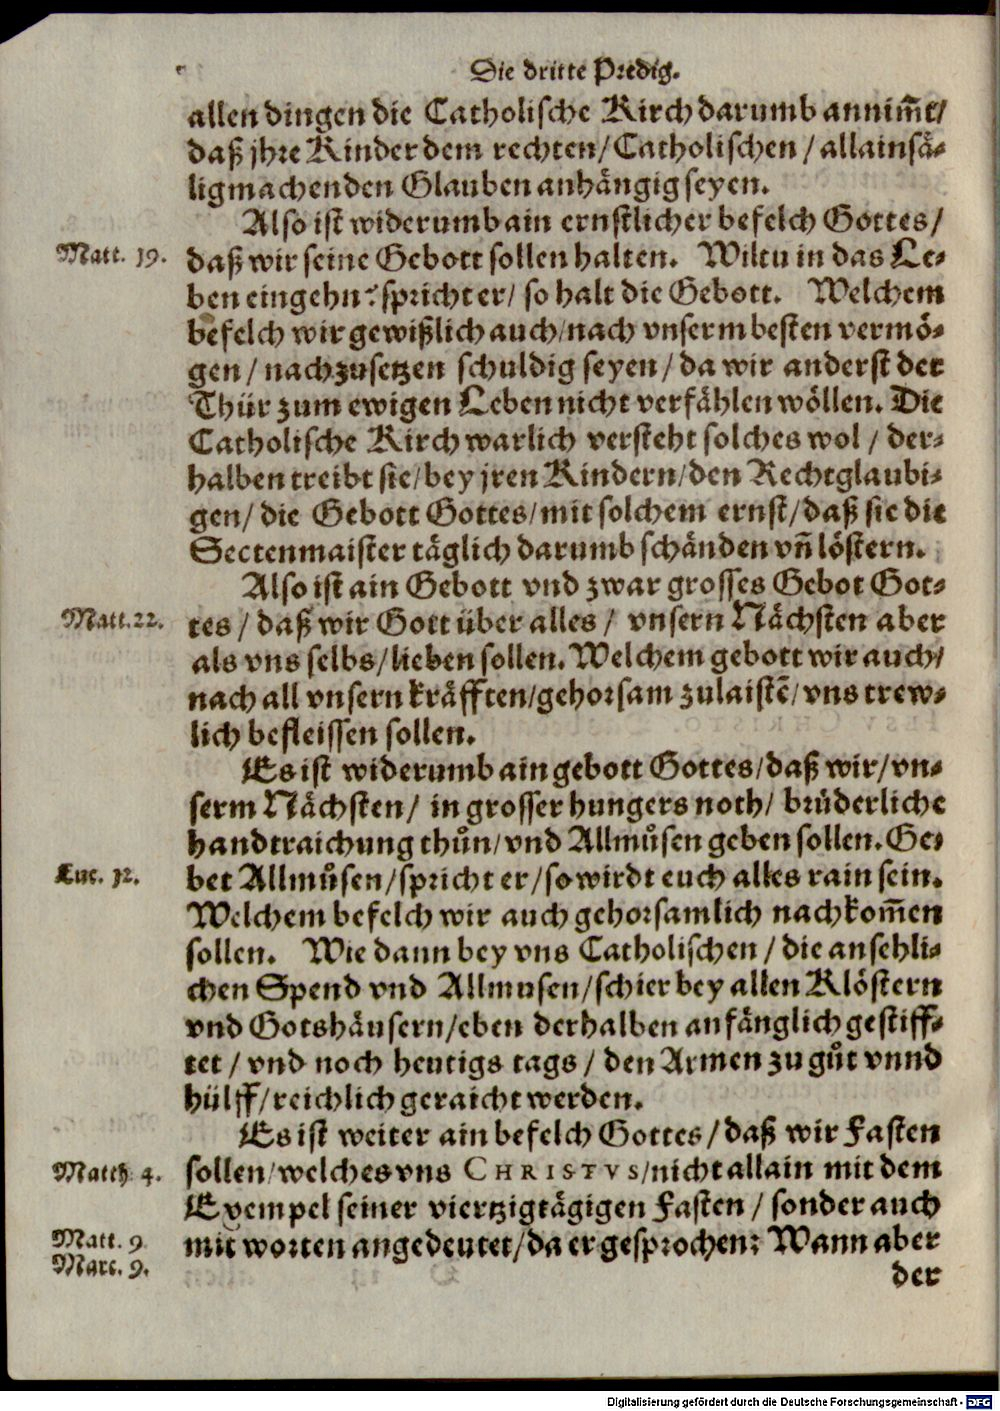 Die dritte Predig.
allen dingen die Catholische Kirch darumb annim̄t/
daß jhre Kinder dem rechten/Catholischen/allainsä-
ligmachenden Glauben anhängig seyen.
Also ist widerumb ain ernstlicher befelch Gottes/
Matt. 19. daß wir seine Gebott sollen halten. Wiltu in das Le-
ben eingehn? spricht er/ so halt die Gebott. Welchem
befelch wir gewißlich auch/nach vnserm besten vermö-
gen/ nachzusetzen schuldig seyen/ da wir anderst der
Thür zum ewigen Leben nicht verfählen wöllen. Die
Catholische Kirch warlich versteht solches wol/ der-
halben treibt sie/bey jren Kindern/den Rechtglaubi-
gen/ die Gebott Gottes/mit solchem ernst/daß sie die
Sectenmaister täglich darumb schänden vn̄ löstern.
Also ist ain Gebott vnd zwar grosses Gebot Got-
Matt.22. tes/ daß wir Gott über alles/ vnsern Nächsten aber
als vns selbs/lieben sollen. Welchem gebott wir auch/
nach all vnsern kräfften/gehorsam zulaistē/vns trew-
lich befleissen sollen.
Es ist widerumb ain gebott Gottes/daß wir/vn-
serm Nächsten/ in grosser hungers noth/ brüderliche
handtraichung thůn/vnd Allmůsen geben sollen. Ge-
Luc. 12. bet Allmůsen/spricht er/so wirdt euch alles rain sein.
Welchem befelch wir auch gehorsamlich nachkom̄en
sollen. Wie dann bey vns Catholischen/die ansehli-
chen Spend vnd Allmusen/schier bey allen Klöstern
vnd Gotshäusern/eben derhalben anfänglich gestiff-
tet/ vnd noch heutigs tags/ den Armen zu gůt vnnd
hülff/reichlich geraicht werden.
Es ist weiter ain befelch Gottes/daß wir Fasten
Matth. 4. sollen/welches vns CHRISTVS/nicht allain mit dem
Exempel seiner viertzigtägigen Fasten/ sonder auch
Matt. 9. mit worten angedeutet/da er gesprochen: Wann aber
Marc. 9.
der
Digitalisierung gefördert durch die Deutsche Forschungsgemeinschaft - DFG